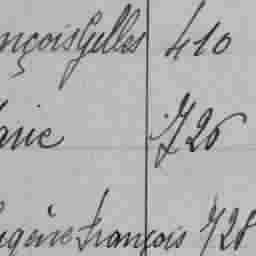 nçois Gilles 410
arie 726
ugène françois 728